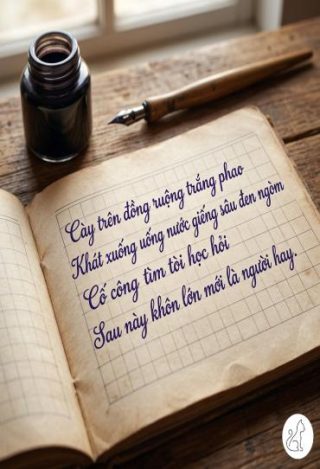 Cày trên đồng ruộng trắng phao
Khát xuống uống nước giếng sâu đen ngòm
Cố công tìm tòi học hỏi
Sau này khôn lớn mới là người hay.